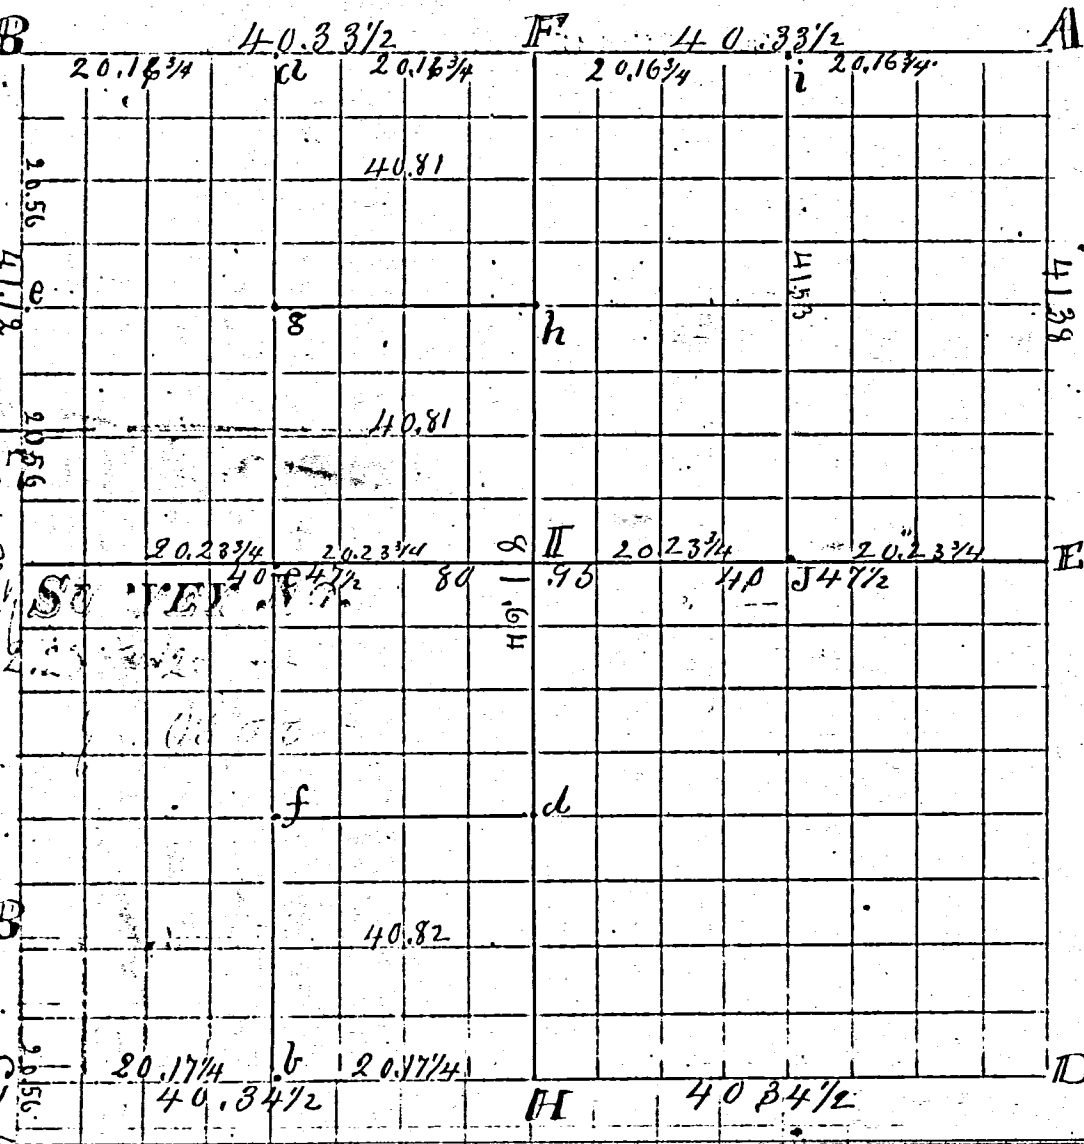 B 40.33½ F 40.33½ A
20.16¾ a 20.16¾ 20.16¾ i 20.16¾
40.81
20.56
41.12
41.53
41.38
g h
40.81
20.56
20.23¾ 20.23¾ II 20.23¾ 20.23¾ E
40 e 47½ 80 .95 40 J 47½
81.64
f d
B 40.82
20.56
20.17¼ b 20.17¼ D
40.34½ H 40 34½